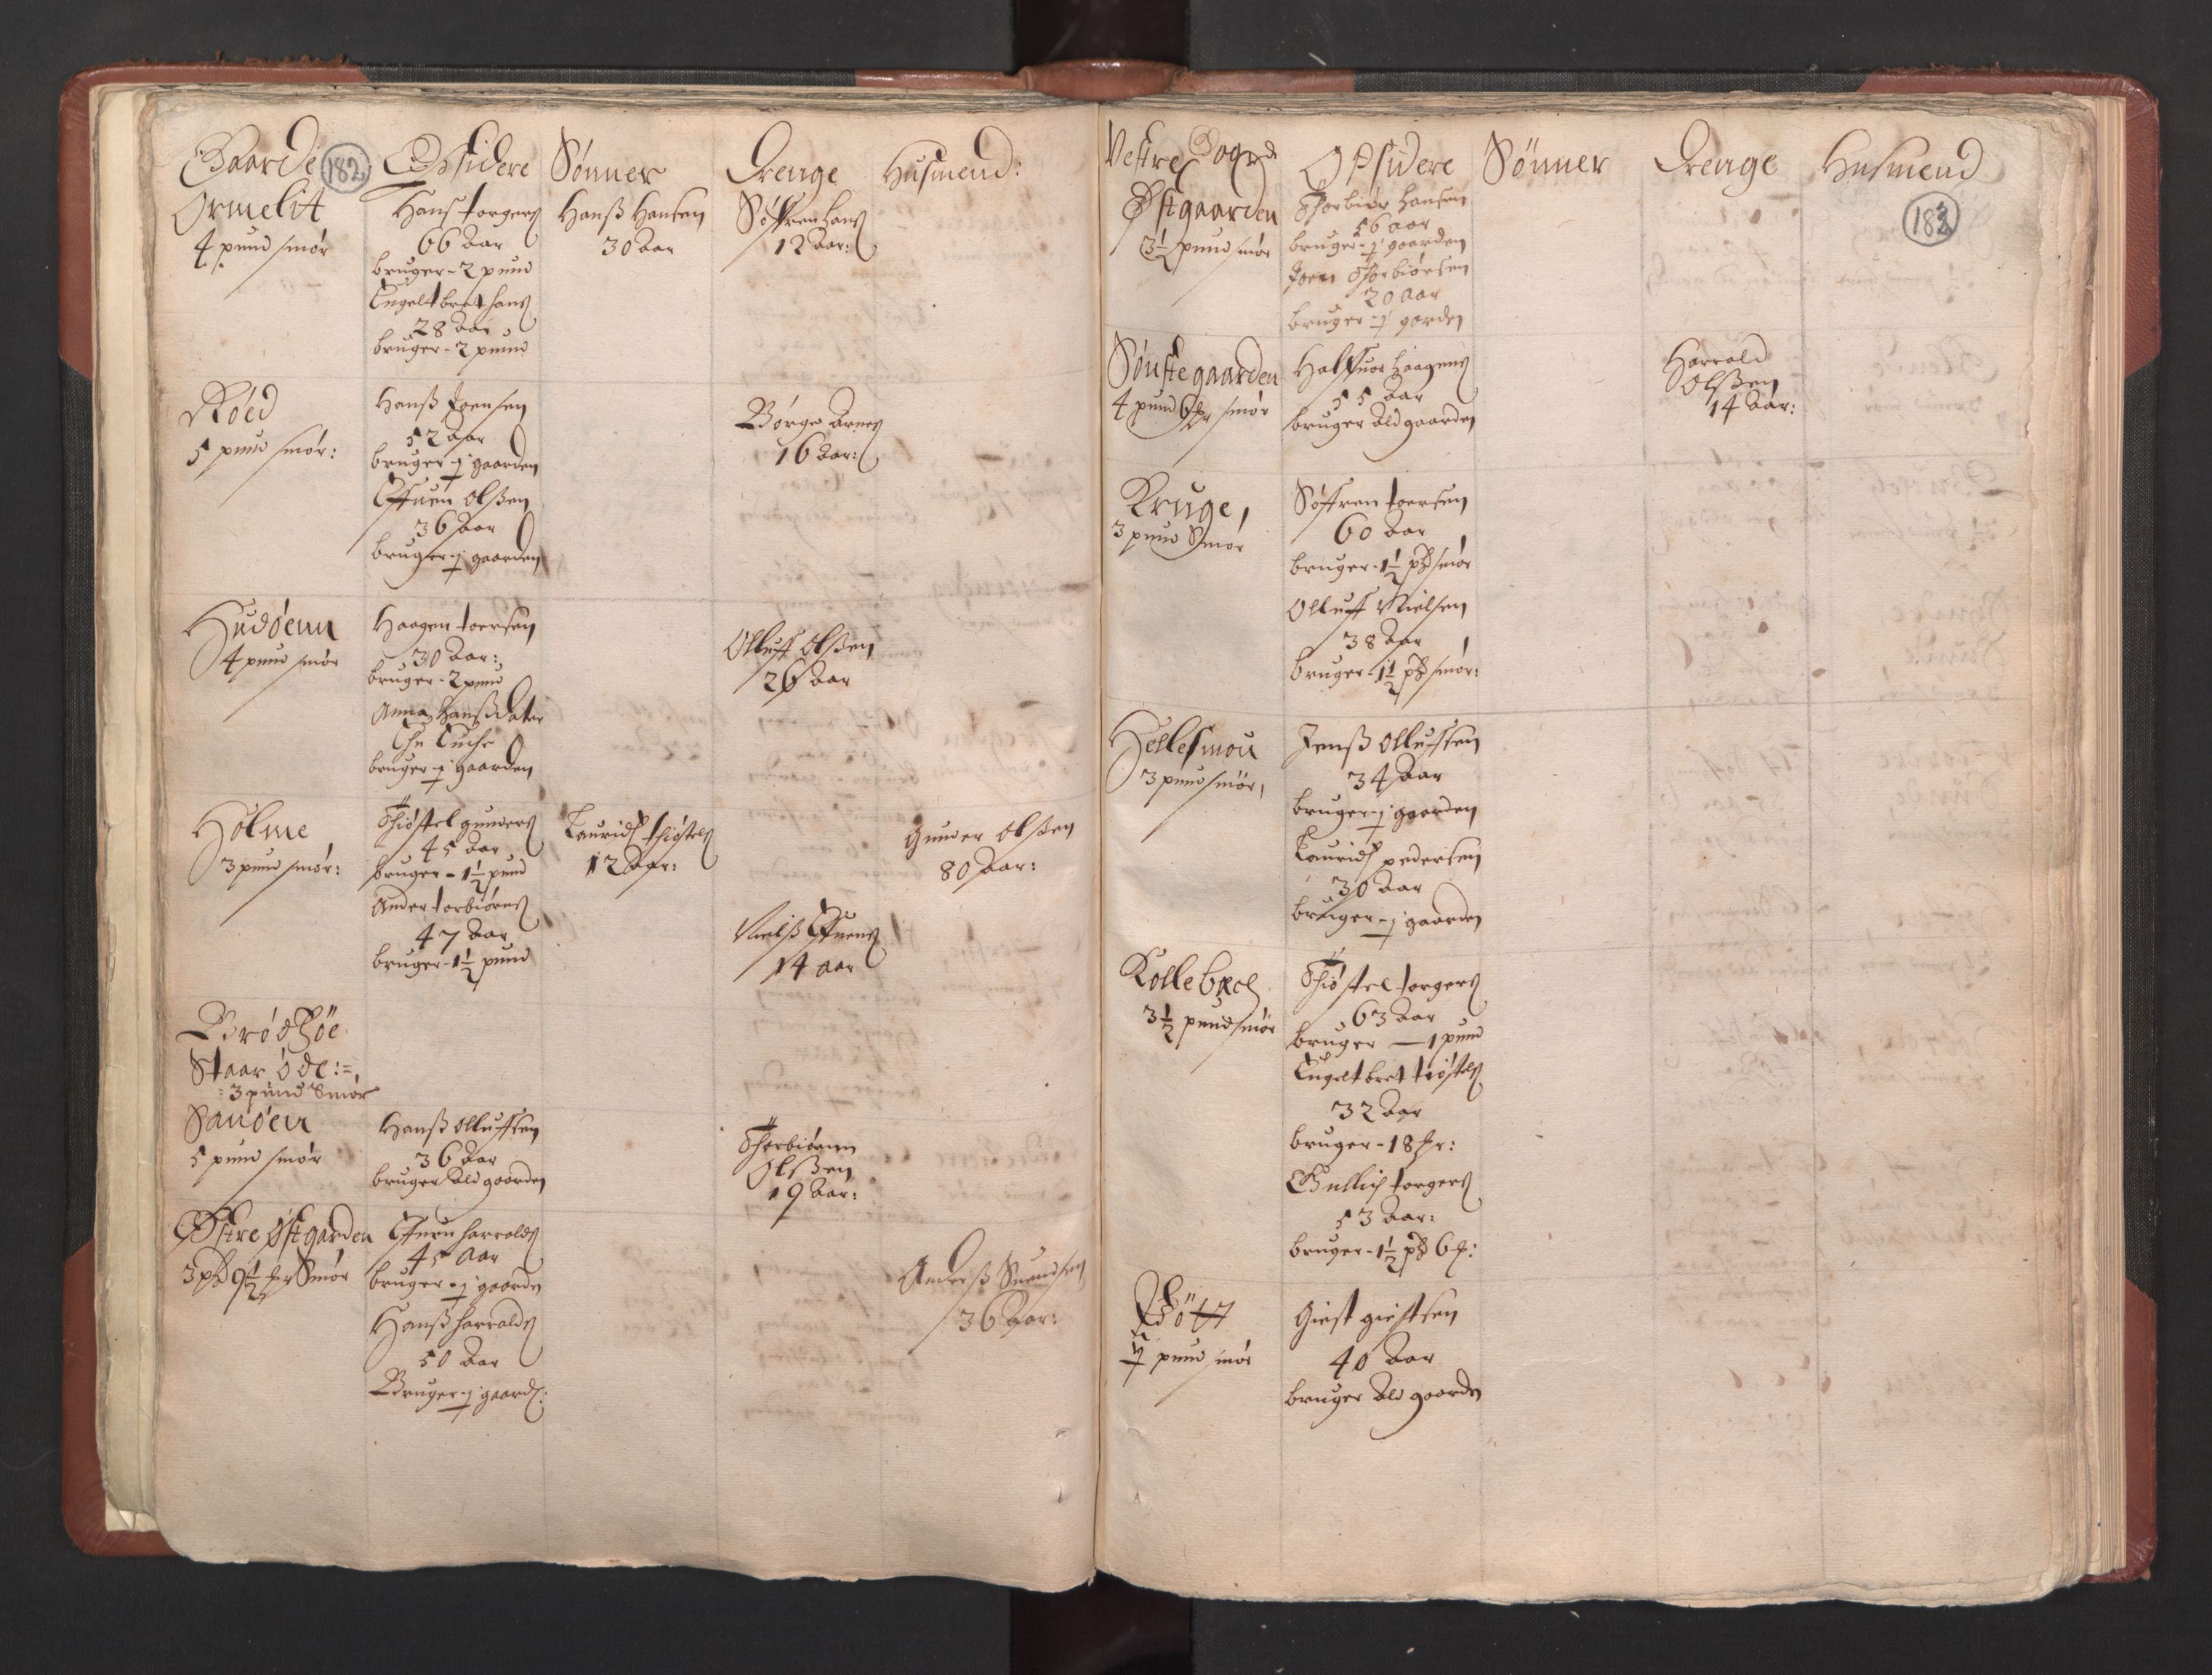 Gaarde 182 Opsidere Sønner Drenge Husmend:
Ormelit
4 pund smør
Hans torgers
66 Aar
bruger - 2 pund
Engelbret hans
28 Aar
bruger - 2 pund
Hanß Hansen
30 Aar
Søffren hans
12 Aar:
Røed
5 pund smør:
Hanß Joensen
52 Aar
bruger ½ gaarden
Effuen Olßen
36 Aar
bruger ½ gaarden
Børge Arnes
16 Aar:
Hudøenn
4 pund smør
Haagen toersen
30 Aar:
bruger - 2 pund
Anna Hanßdater
Enche
bruger ½ gaarden
Olluff Olßen
26 Aar
Holme
3 pund smør:
Thiøstel gunders
45 Aar
bruger - 1½ pund
Ander torbiørns
47 Aar
bruger - 1½ pund
Lauridß thiøstels
12 Aar:
Nielß Effuens
14 aar
Gunder Olßen
80 Aar:
Brødhøe
Staar øde:=
3 pund Smør
Sandøen
5 pund smør
Hanß Olluffsen
36 Aar
bruger Ald gaarden
Thorbiørnn
Olßen
19 Aar:
Østre Østgarden
3 pd 9½ mr Smør
Effuen harralds
45 Aar
bruger - ½ gaarden
Hanß harralds
50 Aar
Bruger - ½ gaard:
Anderß Suendsen
36 Aar:
Vestre Gaard Opsidere Sønner Drenge Husmend
183
Østgaarden
3½ pund smør
Thorbiør hansen
56 aar
bruger - ½ gaarden
Joen Thorbiørsen
20 aar
bruger - ½ garden
Sønstegaarden
4 pund 6 mr smør
Halffuor haagens
55 Aar
bruger Ald gaarden
Harrald
Olßen
14 Aar:
Kruge,
3 pund Smør
Søffren toersen
60 Aar
bruger - 1½ pd smør
Olluff Nielsen
38 Aar
bruger - 1½ pd smør:
Hellesmou
3 pund smør,
Jenß Olluffsen
34 Aar
bruger - ½ gaarden
Lauridß pedersen
30 Aar
bruger - ½ gaarden
Kollebech
3½ pund smør
Thiøstel torgers
63 Aar
bruger — 1 pund
Engelbret tiøstels
32 Aar
bruger - 18 mr:
Gullich torgers
53 Aar:
bruger - 1½ pd 6 m:
pund smør
Giest giestsen
40 Aar
bruger Ald gaarden